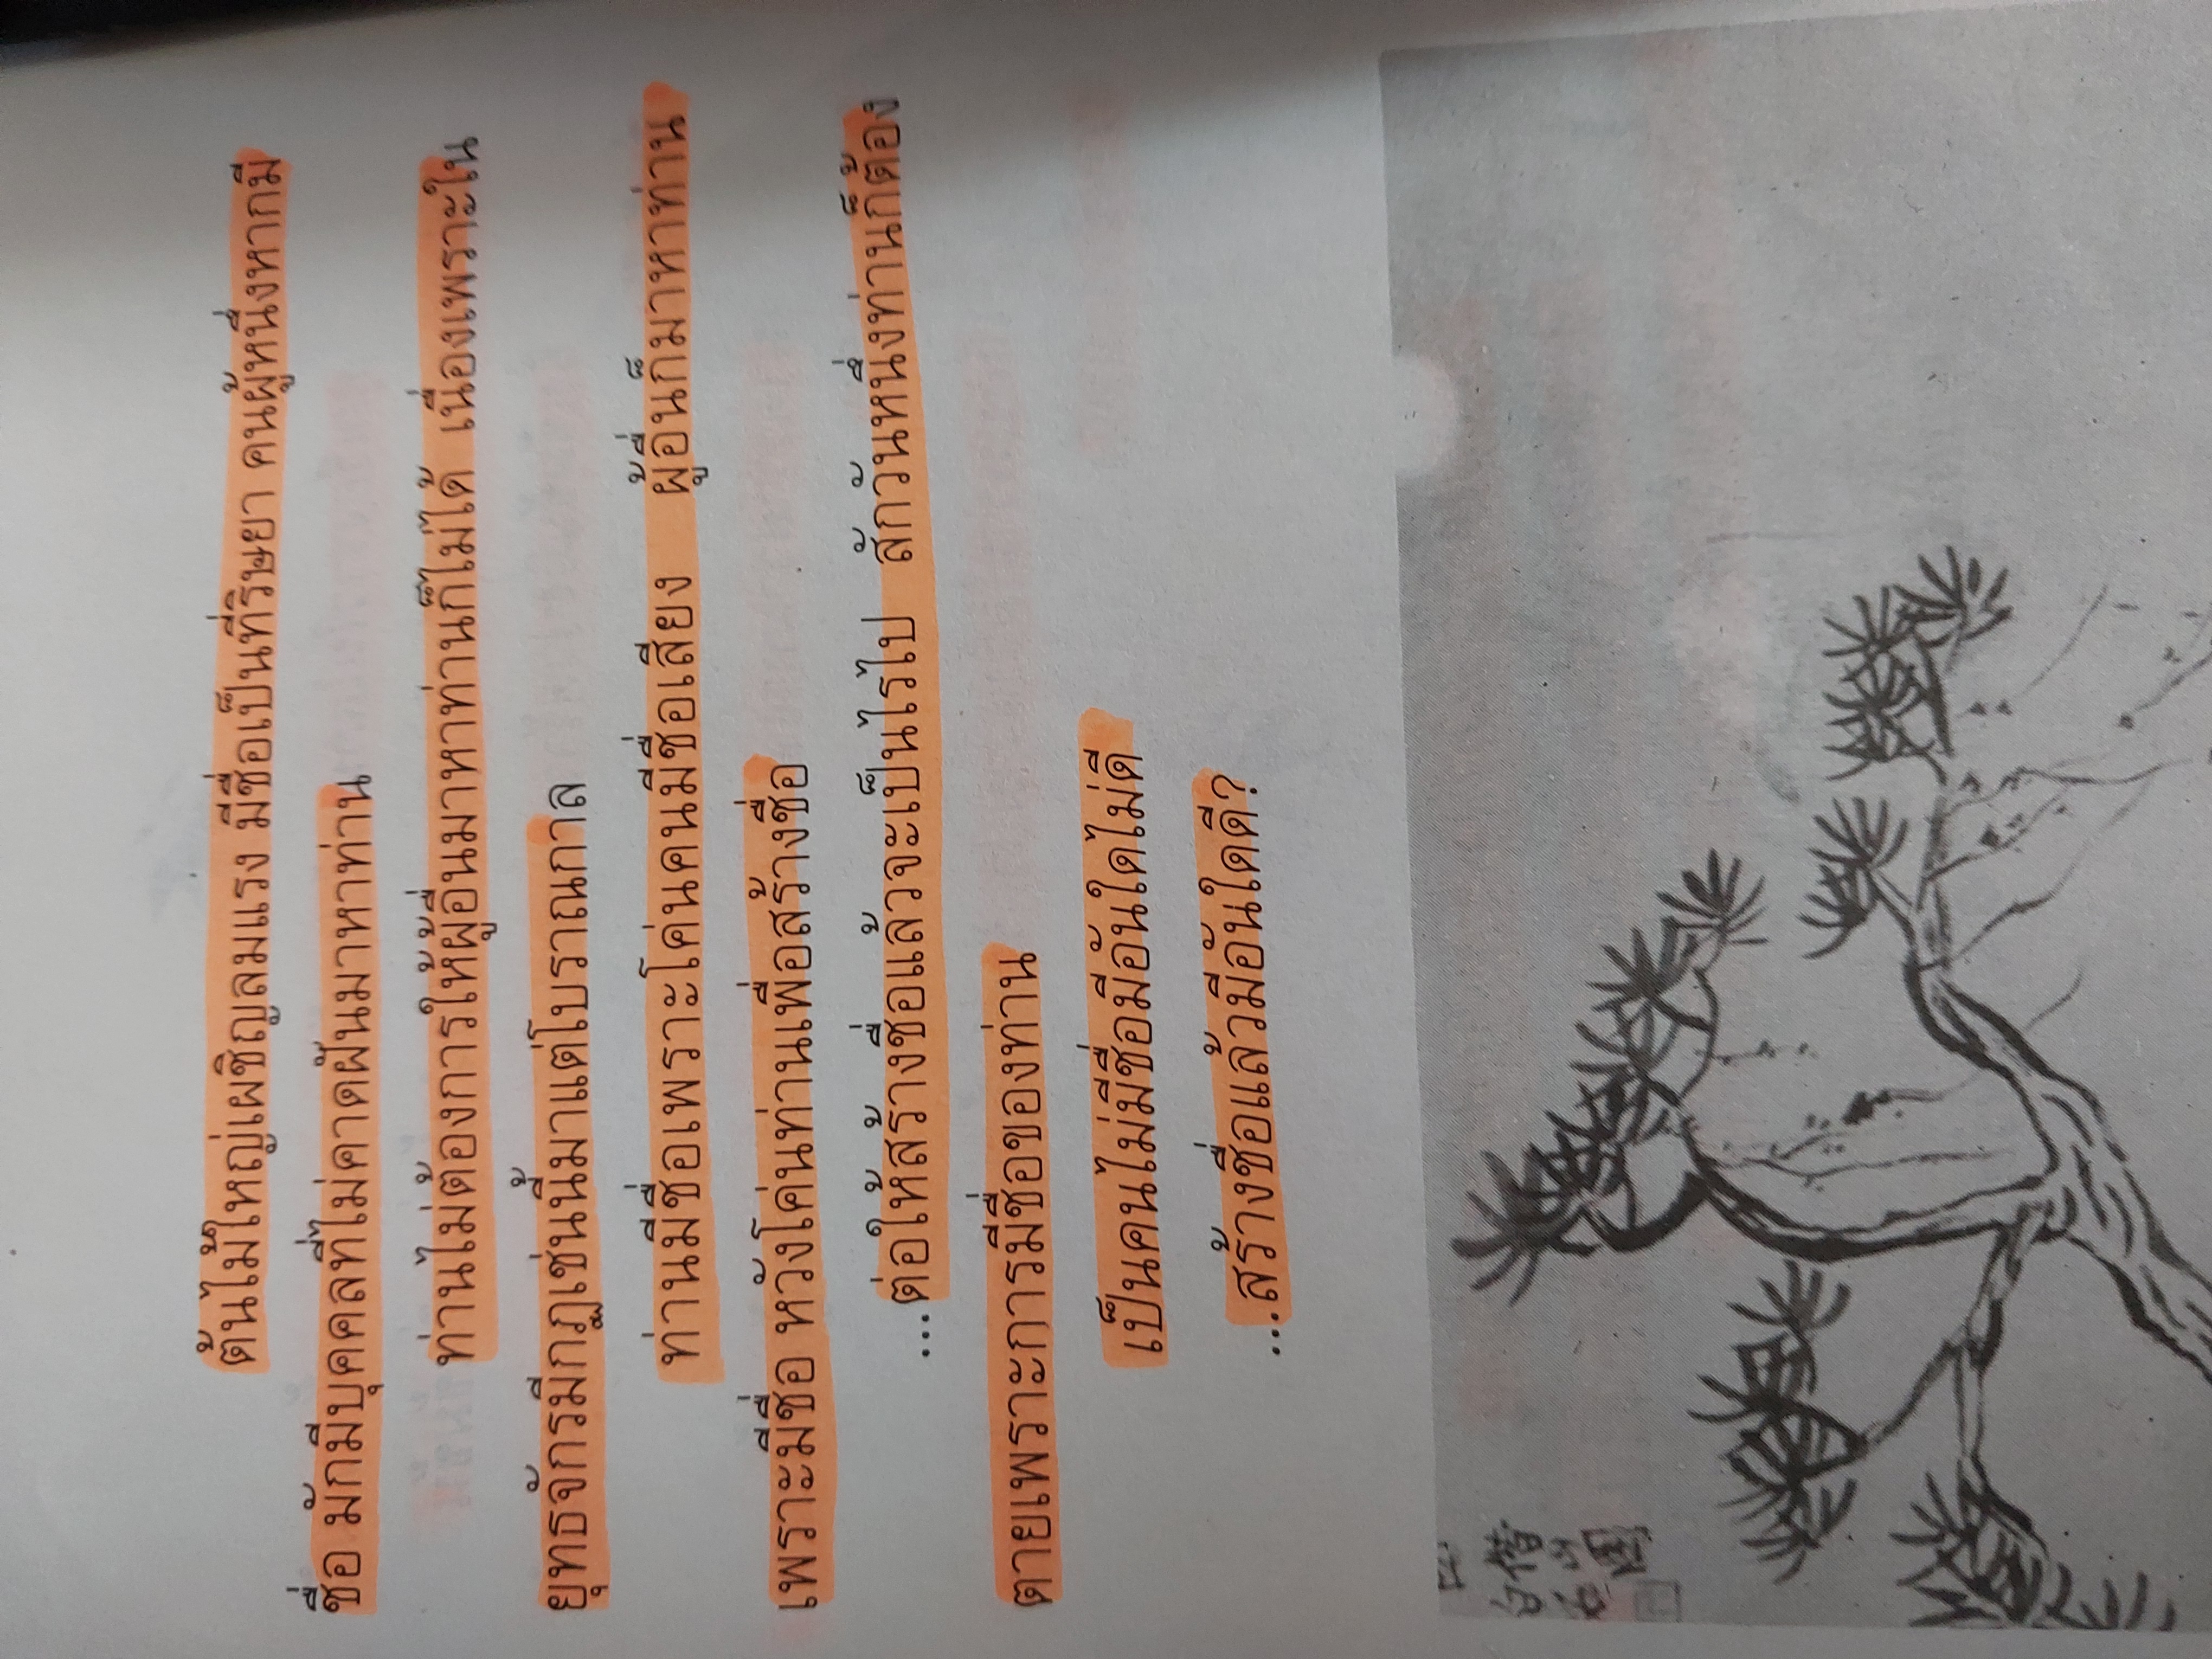 ต้นไม้ใหญ่เผชิญลมแรง มีชื่อเป็นที่ริษยา คนผู้หนึ่งหากมี
ชื่อ มักมีบุคคลที่ไม่คาดฝันมาหาท่าน
ท่านไม่ต้องการให้ผู้อื่นมาหาท่านก็ไม่ได้ เนื่องเพราะใน
ยุทธจักรมีกฎเช่นนี้มาแต่โบราณกาล
ท่านมีชื่อเพราะโค่นคนมีชื่อเสียง ผู้อื่นก็มาหาท่าน
เพราะมีชื่อ หวังโค่นท่านเพื่อสร้างชื่อ
...ต่อให้สร้างชื่อแล้วจะเป็นไรไป สักวันหนึ่งท่านก็ต้อง
ตายเพราะการมีชื่อของท่าน
เป็นคนไม่มีชื่อมีอันใดไม่ดี
...สร้างชื่อแล้วมีอันใดดี?